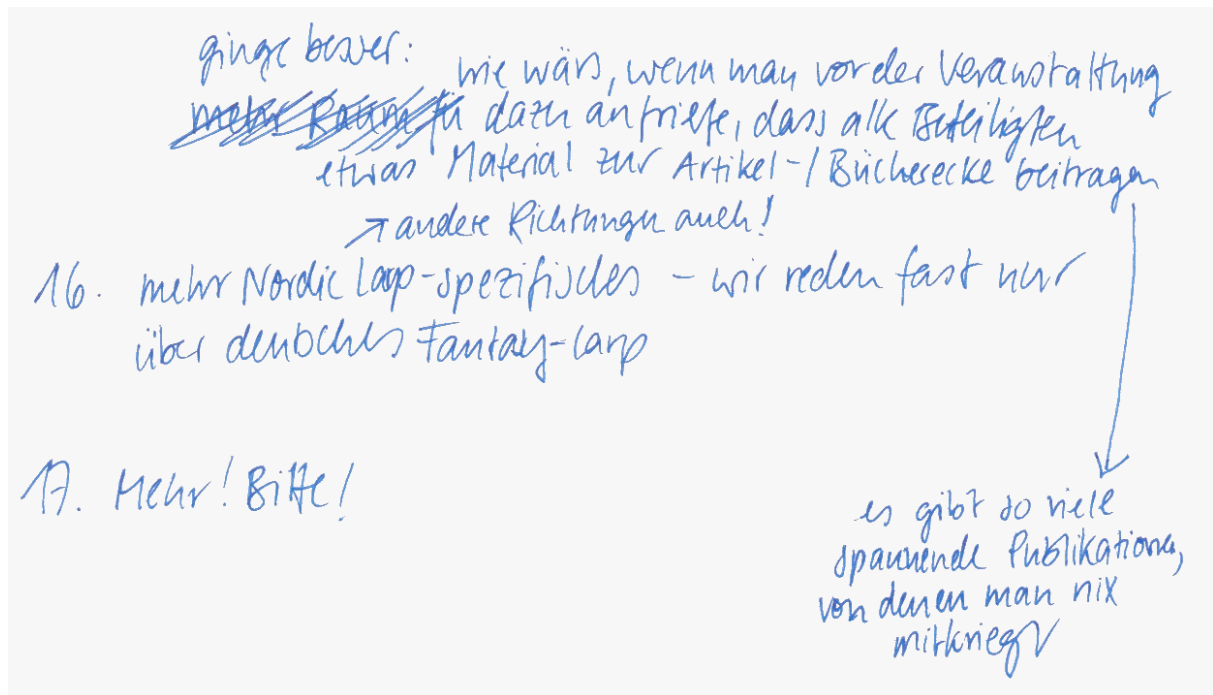 ginge besser:
wie wärs, wenn man vor der Veranstaltung
mehr Raum für dazu aufriefe, dass alle Beteiligten
etwas Material zur Artikel-/Bücherecke beitragen
↗ andere Richtungen auch!
16. mehr Nordic Larp-spezifisches - wir reden fast nur
über deutsches Fantasy-Larp
17. Mehr! Bitte!
es gibt so viele
spannende Publikationen,
von denen man nix
mitkriegt